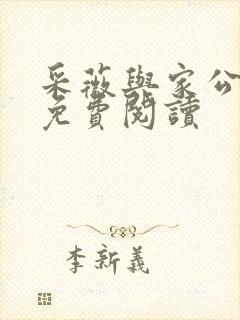 采薇與家公
免費閱讀
李新義